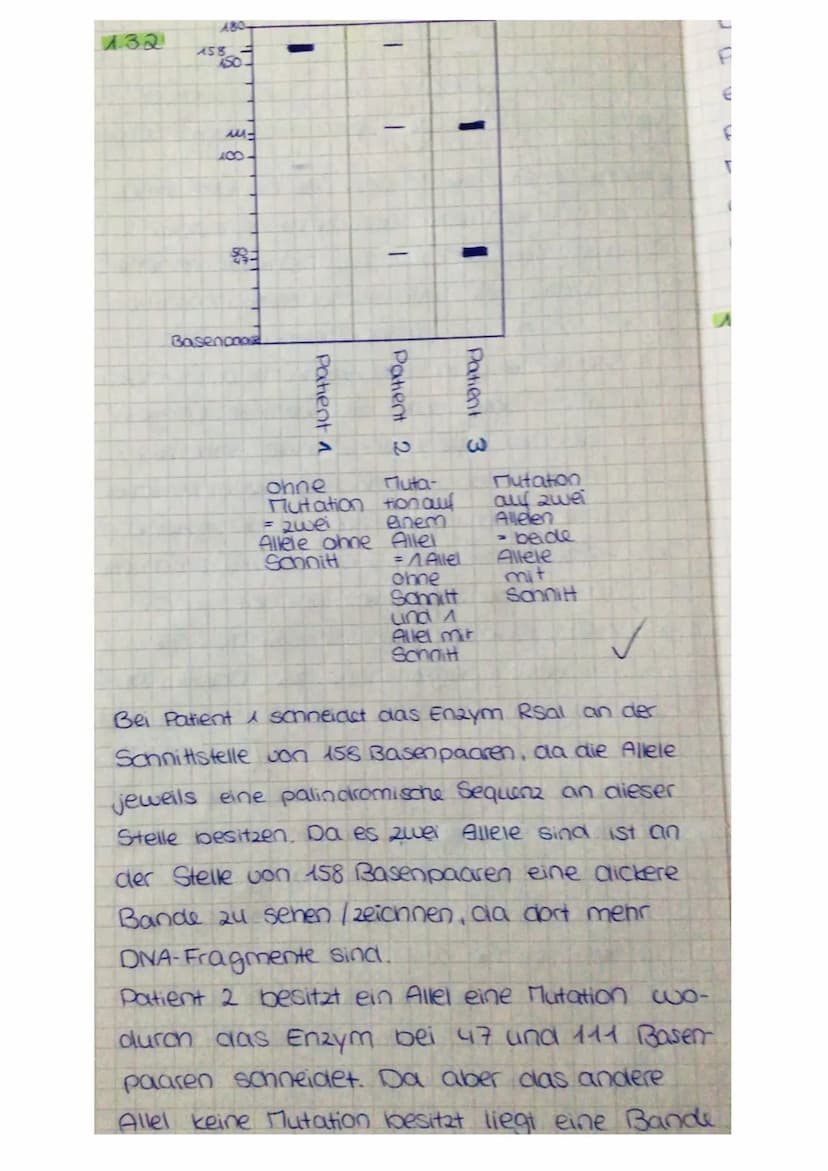 1.3.2
180
158
150
111
100
50
47
Basenpaare
Patient 1
Patient 2
Patient 3
ohne
Mutation
= zwei
Allele ohne
Schnitt
Muta-
tion auf
einem
Allel
= 1 Allel
ohne
Schnitt
und 1
Allel mit
Schnitt
Mutation
auf zwei
Allelen
= beide
Allele
mit
Schnitt
Bei Patient 1 schneidet das Enzym RsaI an der
Schnittstelle von 158 Basenpaaren, da die Allele
jeweils eine palindromische Sequenz an dieser
Stelle besitzen. Da es zwei Allele sind ist an
der Stelle von 158 Basenpaaren eine dickere
Bande zu sehen / zeichnen, da dort mehr
DNA-Fragmente sind.
Patient 2 besitzt ein Allel eine Mutation wo-
durch das Enzym bei 47 und 111 Basen-
paaren schneidet. Da aber das andere
Allel keine Mutation besitzt liegt eine Bande